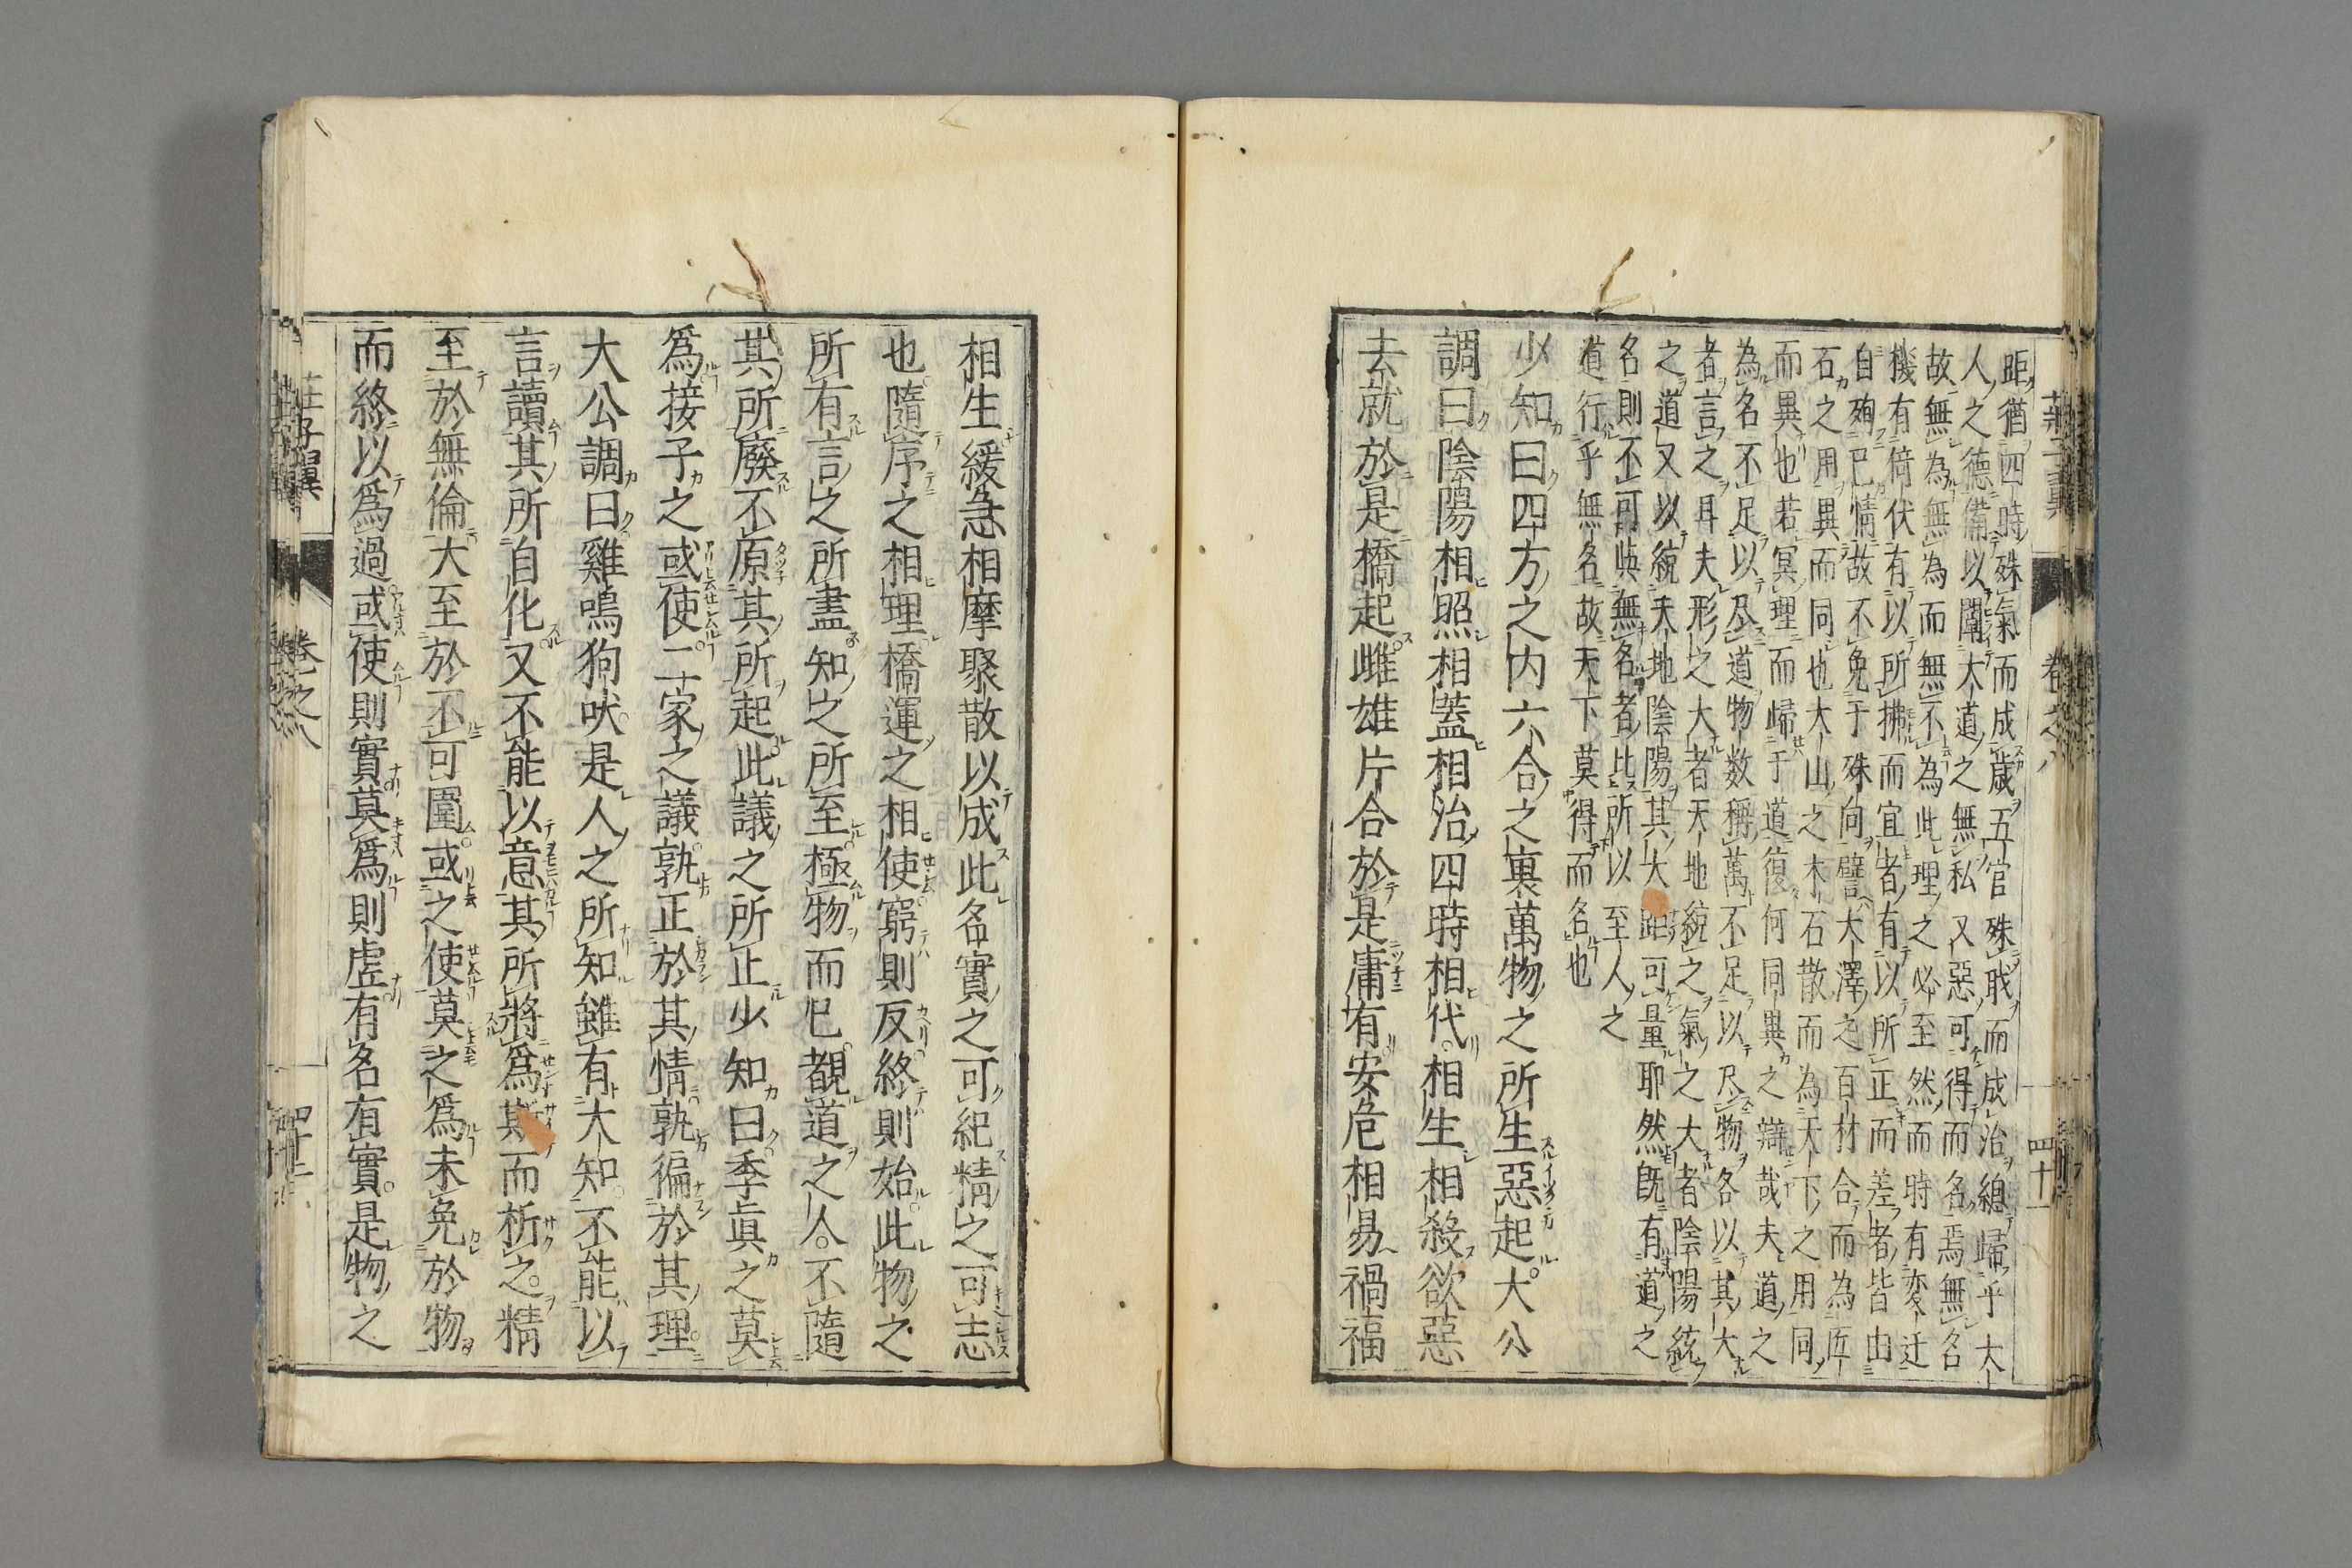 莊子翼
卷之八
四十一
距猶四時殊氣而成歳五官殊職而成治緫歸乎大
人之德備以闡大道之無私又惡可得而名焉無名
故無為無為而無不為此理之必至然而時有変迁
機有倚伏有以所拂而宜者有以所正而差者皆由
自殉已情故不免于殊向譬大澤之百材合而為匠
石之用異而同也大山之木石散而為天下之用同
而異也若冥理而歸于道復何同異之辯哉夫道之
為名不足以尽道物数稱萬不足以尽物各以其大
者言之耳夫形之大者天地統之氣之大者陰陽統
之道又以統天地陰陽其大距可量耶然既有道之
名則不可與無名者比所以至人之
道行乎無名故天下莫得而名也
少知曰四方之内六合之裏萬物之所生惡起大公
調曰陰陽相照相蓋相治四時相代相生相殺欲惡
去就於是橋起雌雄片合於是庸有安危相易禍福
相生緩急相摩聚散以成此名實之可紀精之可志
也隨序之相理橋運之相使窮則反終則始此物之
所有言之所盡知之所至極物而已覩道之人不隨
其所廢不原其所起此議之所止少知曰季眞之莫
爲接子之或使二家之議孰正於其情孰徧於其理
大公調曰雞鳴狗吠是人之所知雖有大知不能以
言讀其所自化又不能以意其所將爲斯而析之精
至於無倫大至於不可圍或之使莫之爲未免於物
而終以爲過或使則實莫爲則虚有名有實是物之
莊子翼
卷之八
四十二